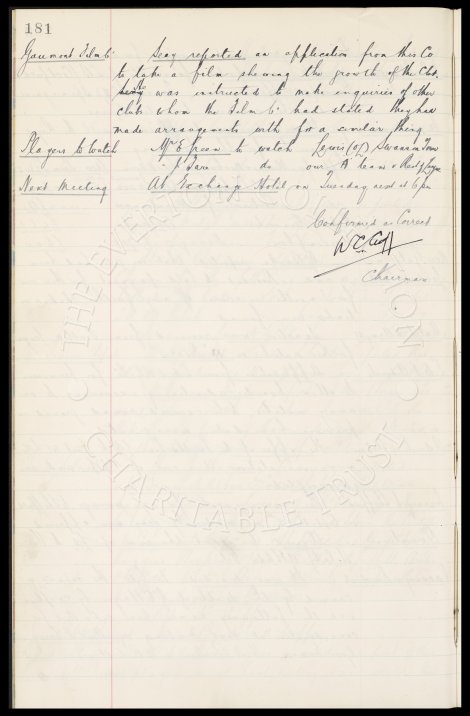 181
Gaumont Film Co Secy reported an application from this Co
to take a film shewing the growth of the Club.
Secy was instructed to make inquiries of other
clubs whom the Film Co had stated they had
made arrangements with for a similar thing
Players to watch Mr E Green to watch Lewis (OL) Swansea Town
" J Sare do our A team v
Next Meeting At Exchange Hotel on Tuesday next at 6 pm
Confirmed as Correct
W C Cuff
Chairman
THE EVERTON COLLECTION
CHARITABLE TRUST